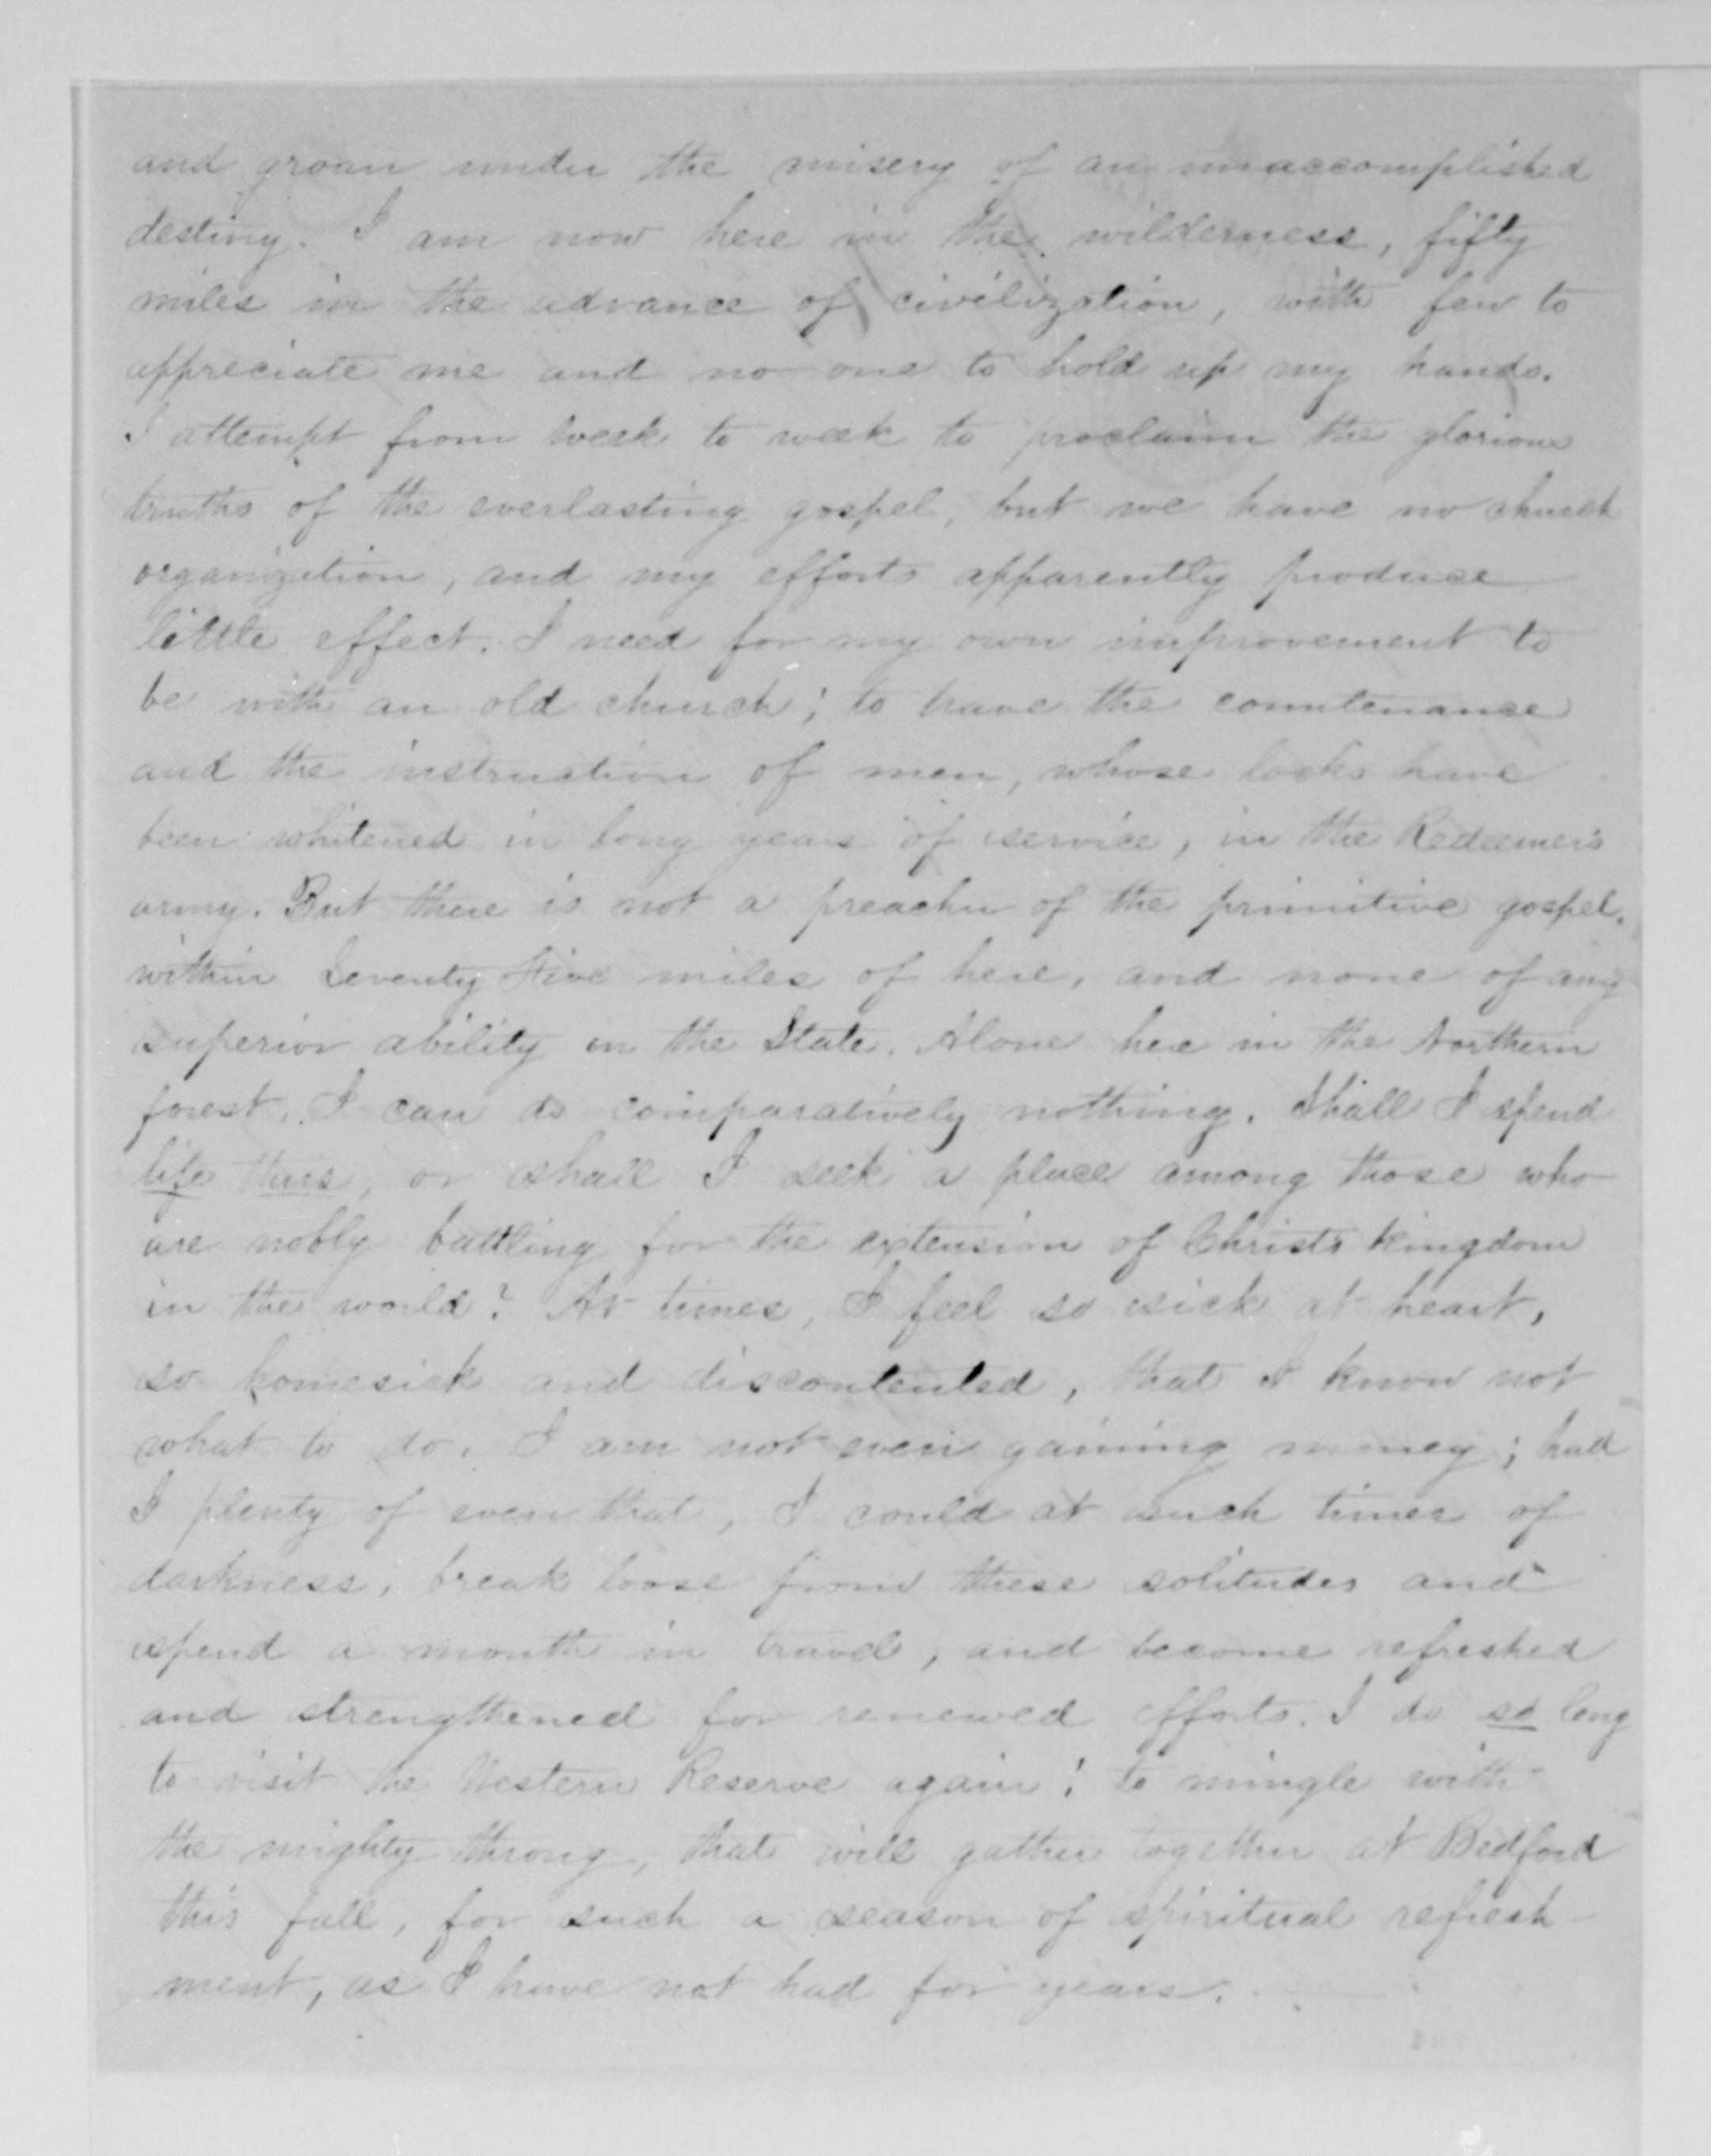 and groan under the misery of an unaccomplished
destiny. I am now here in the wilderness, fifty
miles in the advance of civilization, with few to
appreciate me and no one to hold up my hands.
I attempt from week to week to proclaim the glorious
truths of the everlasting gospel, but we have no church
organization, and my efforts apparently produce
little effect. I need for my own improvement to
be with an old church; to have the countenance
and the instruction of men, whose locks have
been whitened in long years of service, in the Redeemer's
army. But there is not a preacher of the primitive gospel.
within Seventy Five miles of here, and none of any
superior ability in the State. Alone here in the Northern
forest, I can do comparatively nothing. Shall I spend
life thus, or shall I seek a place among those who
are nobly battling for the extension of Christs kingdom
in the world? At times, I feel so sick at heart,
so homesick and discontented, that I know not
what to do. I am not even gaining money; had
I plenty of even that, I could at such times of
darkness, break loose from these solitudes and
spend a month in travel, and become refreshed
and strengthened for renewed efforts. I do so long
to visit the Western Reserve again; to mingle with
the mighty throng, that will gather together at Bedford
this fall, for such a season of spiritual refresh-
ment, as I have not had for years.